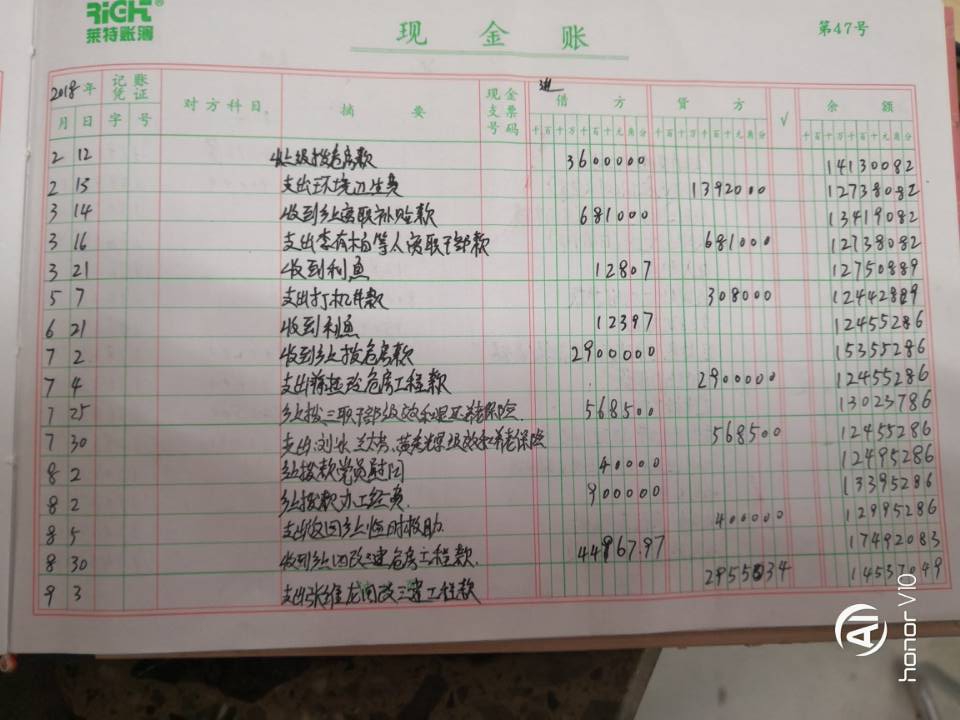 RiCH®
莱特账簿
现金账
第47号
2018年 记账凭证 对方科目 摘要 现金支票号码 进 借方 贷方 √ 余额
月 日 字 号 千百十万千百十元角分 千百十万千百十元角分 千百十万千百十元角分
2 12 收上级拨危房款 3600000 14130082
2 15 支出环境卫生费 1392000 12738082
3 14 收到乡离职补贴款 681000 13419082
3 16 支出李有柏等人离职干部款 681000 12738082
3 21 收到利息 12807 12750889
5 7 支出打机井款 308000 12442889
6 21 收到利息 12397 12455286
7 2 收到乡上拨危房款 2900000 15355286
7 4 支出 危房工程款 2900000 12455286
7 25 乡上拨三职干部绩效和 养老保险 568500 13023786
7 30 支出刘 绩效和养老保险 568500 12455286
8 2 乡拨款党员慰问 40000 12495286
8 2 乡拨款办公经费 900000 13395286
8 5 支出返回乡上临时救助 400000 12995286
8 30 收到乡 四改三建危房工程款 44967.97 17492083
9 3 支出张维龙四改三建工程款 2955034 14537049
AI
honor V10